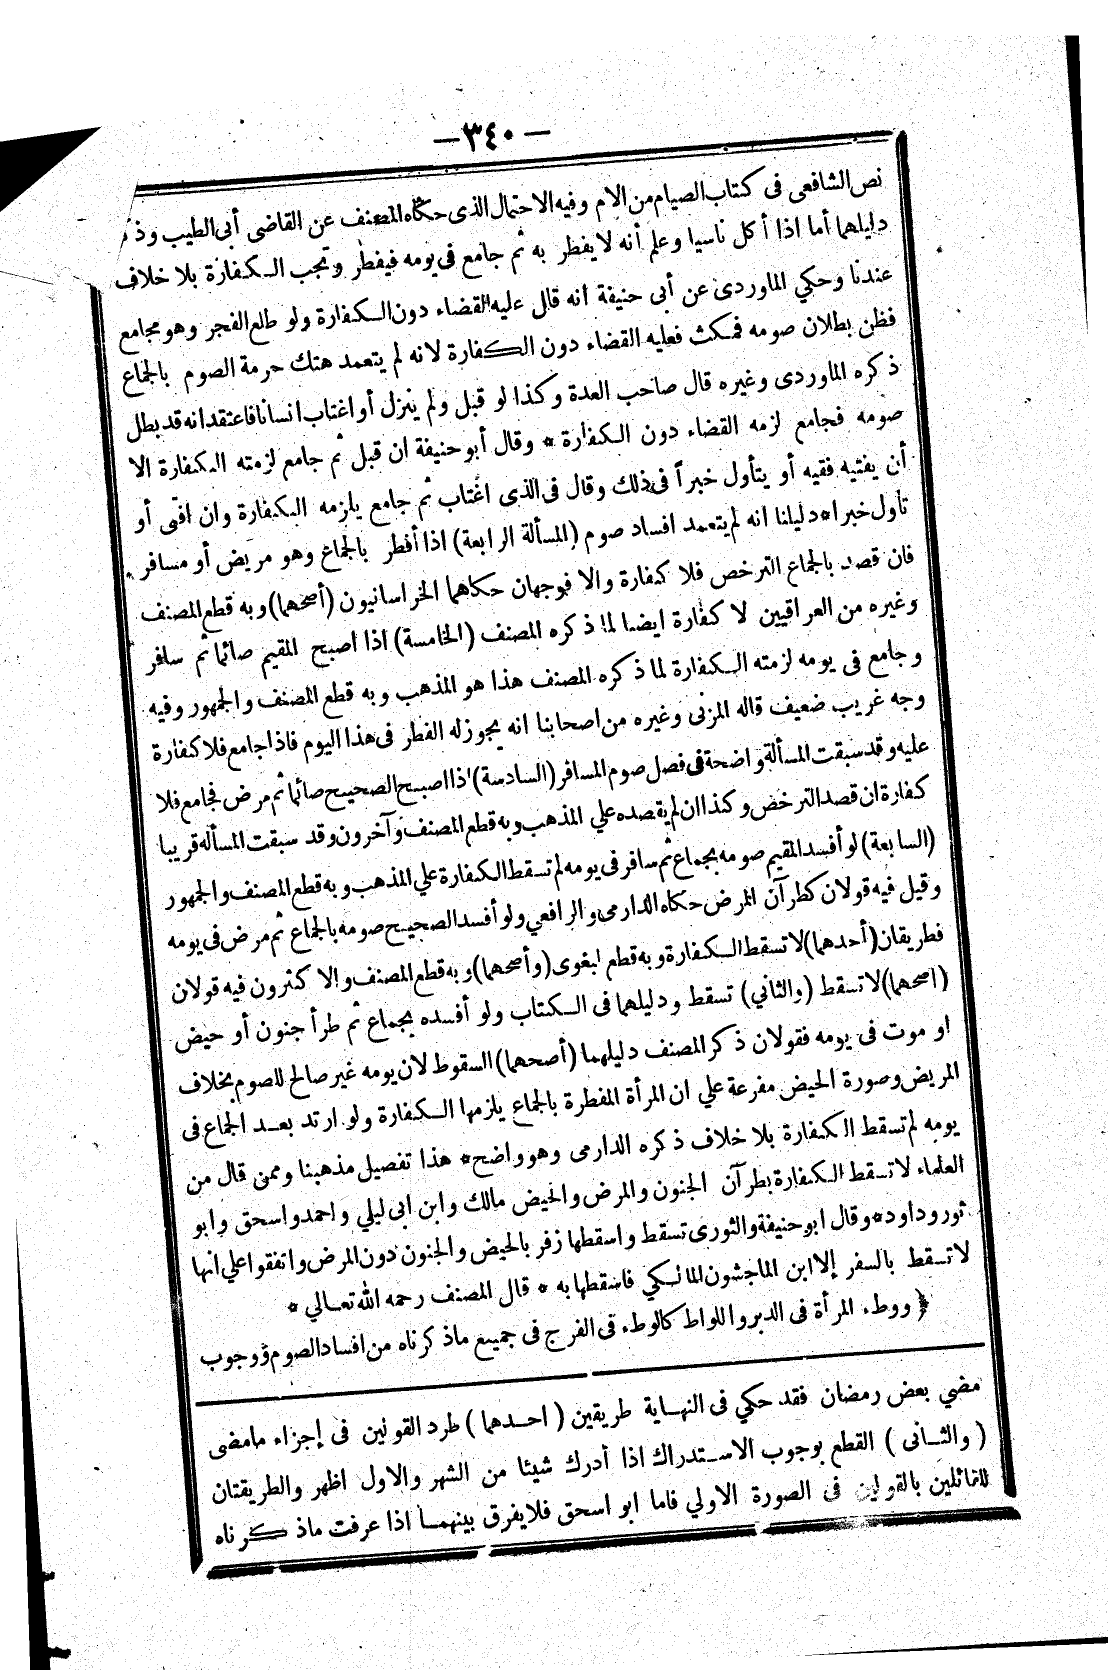 — ٣٤٠ —
نص الشافعى فى كتاب الصيام من الام وفيه الاحتمال الذى حكاه المصنف عن القاضى أبى الطيب وذكر
دليلهما أما اذا أكل ناسيا وعلم أنه لا يفطر به ثم جامع فى يومه فيفطر وتجب الكفارة بلا خلاف
عندنا وحكي الماوردى عن أبى حنيفة انه قال عليه القضاء دون الكفارة ولو طلع الفجر وهو مجامع
فظن بطلان صومه فمكث فعليه القضاء دون الكفارة لانه لم يتعمد هتك حرمة الصوم بالجماع
ذكره الماوردى وغيره قال صاحب العدة وكذا لو قبل ولم ينزل أو اغتاب انسانا فاعتقد انه قد بطل
صومه فجامع لزمه القضاء دون الكفارة * وقال أبو حنيفة ان قبل ثم جامع لزمته الكفارة الا
أن يفتيه فقيه أو يتأول خبراً فى ذلك وقال فى الذى اغتاب ثم جامع يلزمه الكفارة وان افتى أو
تأول خبرا * دليلنا انه لم يتعمد افساد صوم (المسألة الرابعة) اذا أفطر بالجماع وهو مريض أو مسافر
فان قصد بالجماع الترخص فلا كفارة والا فوجهان حكاهما الخراسانيون (أصحهما) وبه قطع المصنف
وغيره من العراقيين لا كفارة ايضا لما ذكره المصنف (الخامسة) اذا اصبح المقيم صائما ثم سافر
وجامع فى يومه لزمته الكفارة لما ذكره المصنف هذا هو المذهب وبه قطع المصنف والجمهور وفيه
وجه غريب ضعيف قاله المزنى وغيره من اصحابنا انه يجوز له الفطر فى هذا اليوم فاذا جامع فلا كفارة
عليه وقد سبقت المسألة واضحة فى فصل صوم المسافر (السادسة) اذا اصبح الصحيح صائما ثم مرض فجامع فلا
كفارة ان قصد الترخص وكذا ان لم يقصده علي المذهب وبه قطع المصنف وآخرون وقد سبقت المسألة قريبا
(السابعة) لو أفسد المقيم صومه بجماع ثم سافر فى يومه لم تسقط الكفارة علي المذهب وبه قطع المصنف والجمهور
وقيل فيه قولان كطرآن المرض حكاه الدارمى والرافعي ولو أفسد الصحيح صومه بالجماع ثم مرض فى يومه
فطريقان (أحدهما) لا تسقط الكفارة وبه قطع البغوى (وأصحهما) وبه قطع المصنف والا كثرون فيه قولان
(اصحهما) لا تسقط (والثاني) تسقط ودليلهما فى الكتاب ولو أفسده بجماع ثم طرأ جنون أو حيض
او موت فى يومه فقولان ذكر المصنف دليلهما (أصحهما) السقوط لان يومه غير صالح للصوم بخلاف
المريض وصورة الحيض مفرعة علي ان المرأة المفطرة بالجماع يلزمها الكفارة ولو ارتد بعد الجماع فى
يومه لم تسقط الكفارة بلا خلاف ذكره الدارمى وهو واضح * هذا تفصيل مذهبنا وممن قال من
العلماء لا تسقط الكفارة بطرآن الجنون والمرض والحيض مالك وابن ابى ليلي واحمد واسحق وابو
ثور وداود * وقال ابو حنيفة والثورى تسقط واسقطها زفر بالحيض والجنون دون المرض واتفقوا علي انها
لا تسقط بالسفر إلا ابن الماجشون المالكي فاسقطها به * قال المصنف رحمه الله تعالي *
﴿ ووطء المرأة فى الدبر واللواط كالوطء فى الفرج فى جميع ما ذكرناه من افساد الصوم ووجوب
مضي بعض رمضان فقد حكي فى النهاية طريقين (احدهما) طرد القولين فى إجزاء ما مضى
(والثانى) القطع بوجوب الاستدراك اذا أدرك شيئا من الشهر والاول اظهر والطريقتان
للقائلين بالقولين فى الصورة الاولي فاما ابو اسحق فلا يفرق بينهما اذا عرفت ماذ كرناه